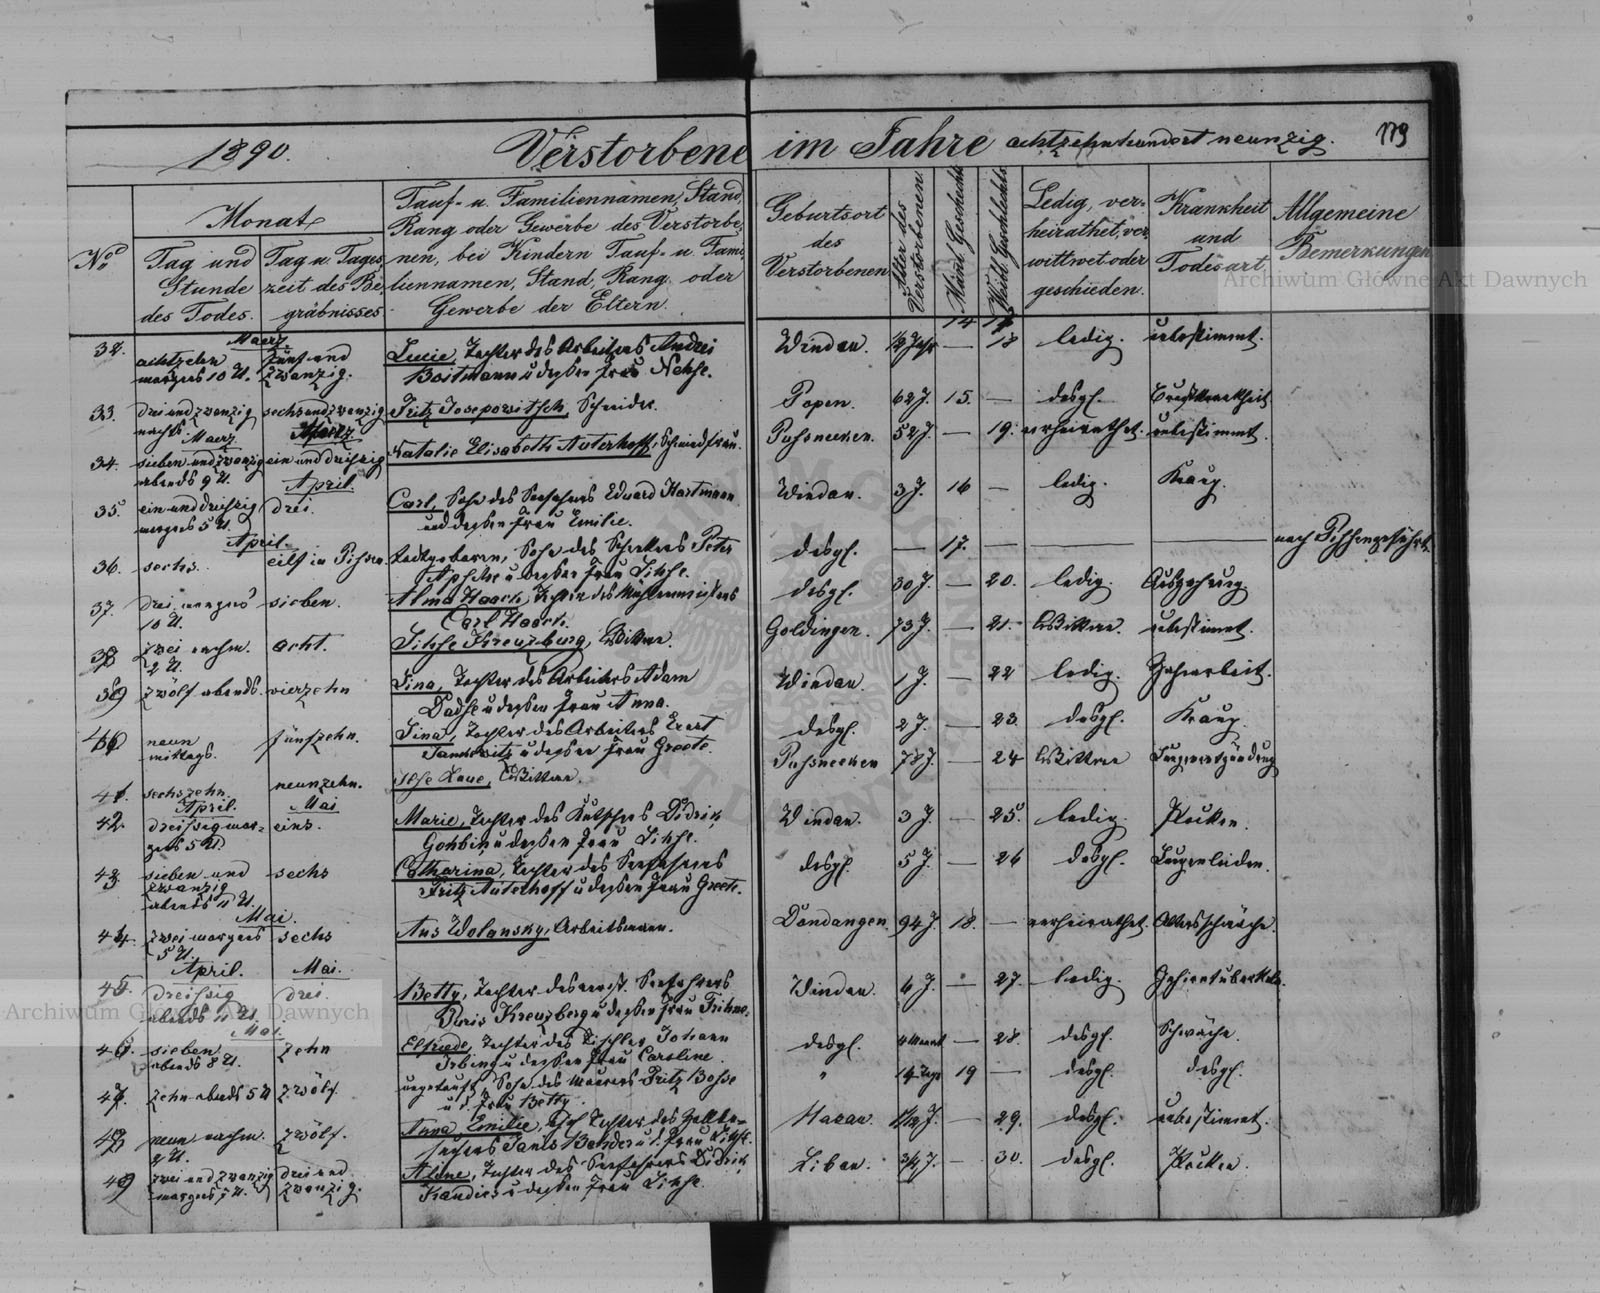 1890. Verstorbene im Jahre achtzehnhundert neunzig. 179
No
Monat
Tag und Stunde des Todes.
Tag u. Tageszeit des Begräbnisses
Tauf- u. Familiennamen, Stand,
Rang oder Gewerbe des Verstorbe
nen, bei Kindern Tauf- u. Fami
liennamen, Stand, Rang oder
Gewerbe der Eltern.
Geburtsort
des
Verstorbenen
Alter des Verstorbenen
Mänl. Geschecht
Weibl. Geschlechts
Ledig, ver-
heirathet, ver
wittwet oder
geschieden.
Krankheit
und
Todesart
Allgemeine
Bemerkungen
Archiwum Główne Akt Dawnych
Maerz 14
32. achtzehn fünf und Lucie, Tochter des Arbeiters Andrei Windau. — 18 ledig. unbestimmt.
morgens 10 U. zwanzig. u dessen Frau
33. drei und zwanzig sechs und zwanzig Fritz Joseposwitsch, Schneider. Popen. 62 J. 15. — desgl. Brustkrankheit
nachts
Maerz Maerz
34. sieben und zwanzig ein und dreißig Natalie Elisabeth Auterhoff, Schmiedfrau. Pussneeken. 52 J. — 19. verheirathet. unbestimmt.
abends 9 U.
April.
35. ein und dreißig drei. Carl, Sohn des Seefahrers Eduard Hartmann Windau. 3 J. 16 — ledig.
morgens 5 U. und dessen Frau Emilie.
April.
36. sechs. eilf in Todtgeboren, Sohn des Peter desgl. — 17. — — — nach
u dessen Frau
37. drei morgens sieben. Alma Haack, Tochter des Mühlenmeisters desgl. 30 J. — 20. ledig. Auszehrung.
10 U. Carl Haack.
38 zwei nachm. acht. Kreuzburg, Wittwe. Goldingen. 73 J. — 21. Wittwe. unbestimmt.
2 U.
39 zwölf abends. vierzehn Lina, Tochter des Arbeiters Adam Windau. 1 J. — 22 ledig. Zahnarbeit.
u dessen Frau Anna.
40 neun fünfzehn. Lina, Tochter des Arbeiters Ernst desgl. 2 J. — 23. desgl.
mittags. u dessen Frau Greete.
41. sechszehn. neunzehn. Ilse Wittwe. Pussneeken 78 J. — 24 Wittwe Lungenentzündung
April. Mai
42. dreißig mor- eins. Marie, Tochter des Kutschers Didrik Windau. 3 J. — 25. ledig. Pocken.
gens 5 U. u dessen Frau
43. sieben und sechs Catharina, Tochter des Seefahrers desgl. 5 J. — 26 desgl. Lungenleiden.
zwanzig Fritz Auterhoff u dessen Frau Greete.
abends 11 U.
Mai.
44. zwei morgens sechs Ans Wolansky, Arbeitsmann. Dondangen. 94 J. 18. — verheirathet. Altersschwäche.
5 U.
April. Mai.
45. dreißig drei. Betty, Tochter des Seefahrers Windau. 6 J. — 27. ledig.
abends 11 U. Kreuzberg u dessen Frau
Mai.
46. sieben zehn Elfriede, Tochter des Tischlers Johann desgl. 4 Monat — 28. desgl. Schwäche.
abends 8 U. u dessen Frau Caroline.
47. zehn abends 5 U zwölf. ungetauft, Sohn des Maurers Fritz Bosse " 14 Tage 19 — desgl. desgl.
u d. Frau Betty.
48 neun nachm. zwölf. Anna Emilie, Tochter des Hasau. — 29. desgl. unbestimmt.
2 U. Janis u d. Frau
49 zwei und zwanzig drei und Aline, Tochter des Seefahrers Didrik Libau. 3/4 J. — 30. desgl. Pocken.
morgens 7 U. zwanzig. u dessen Frau
Archiwum Główne Akt Dawnych